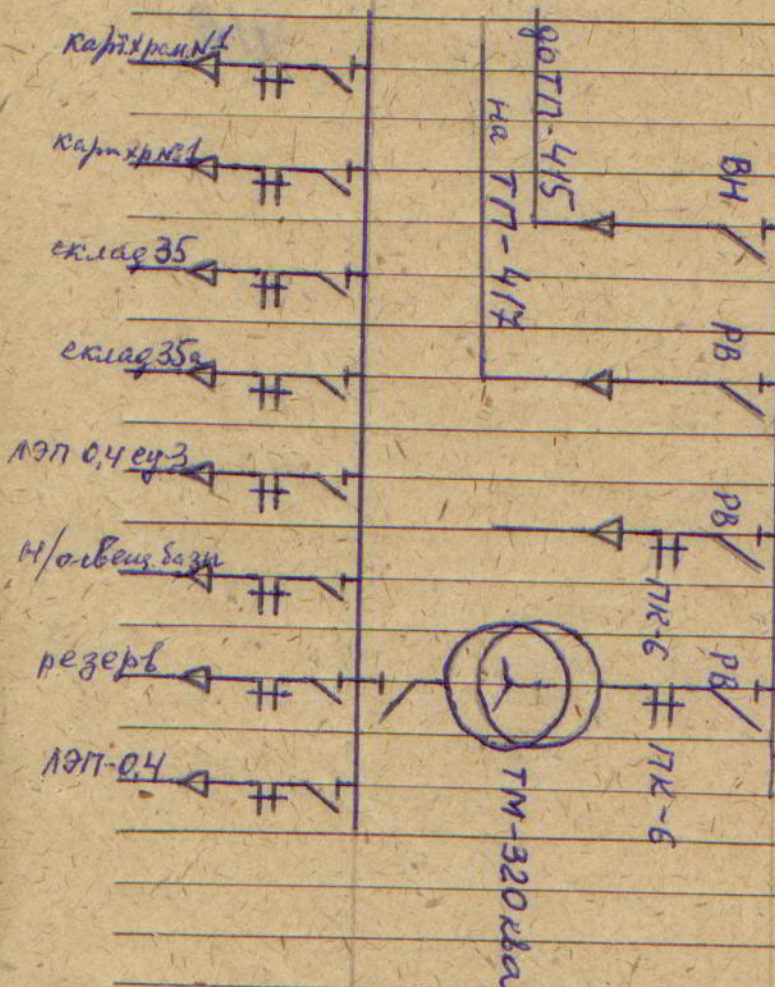 картхран.№1
картхр№1
склад 35
склад 35а
ЛЭП 0,4 су-3
Н/освещ. базы
резерв
ЛЭП-0,4
до ТП-415
на ТП-417
ВН
РВ
РВ
ПК-6
РВ
ПК-6
ТМ-320 ква